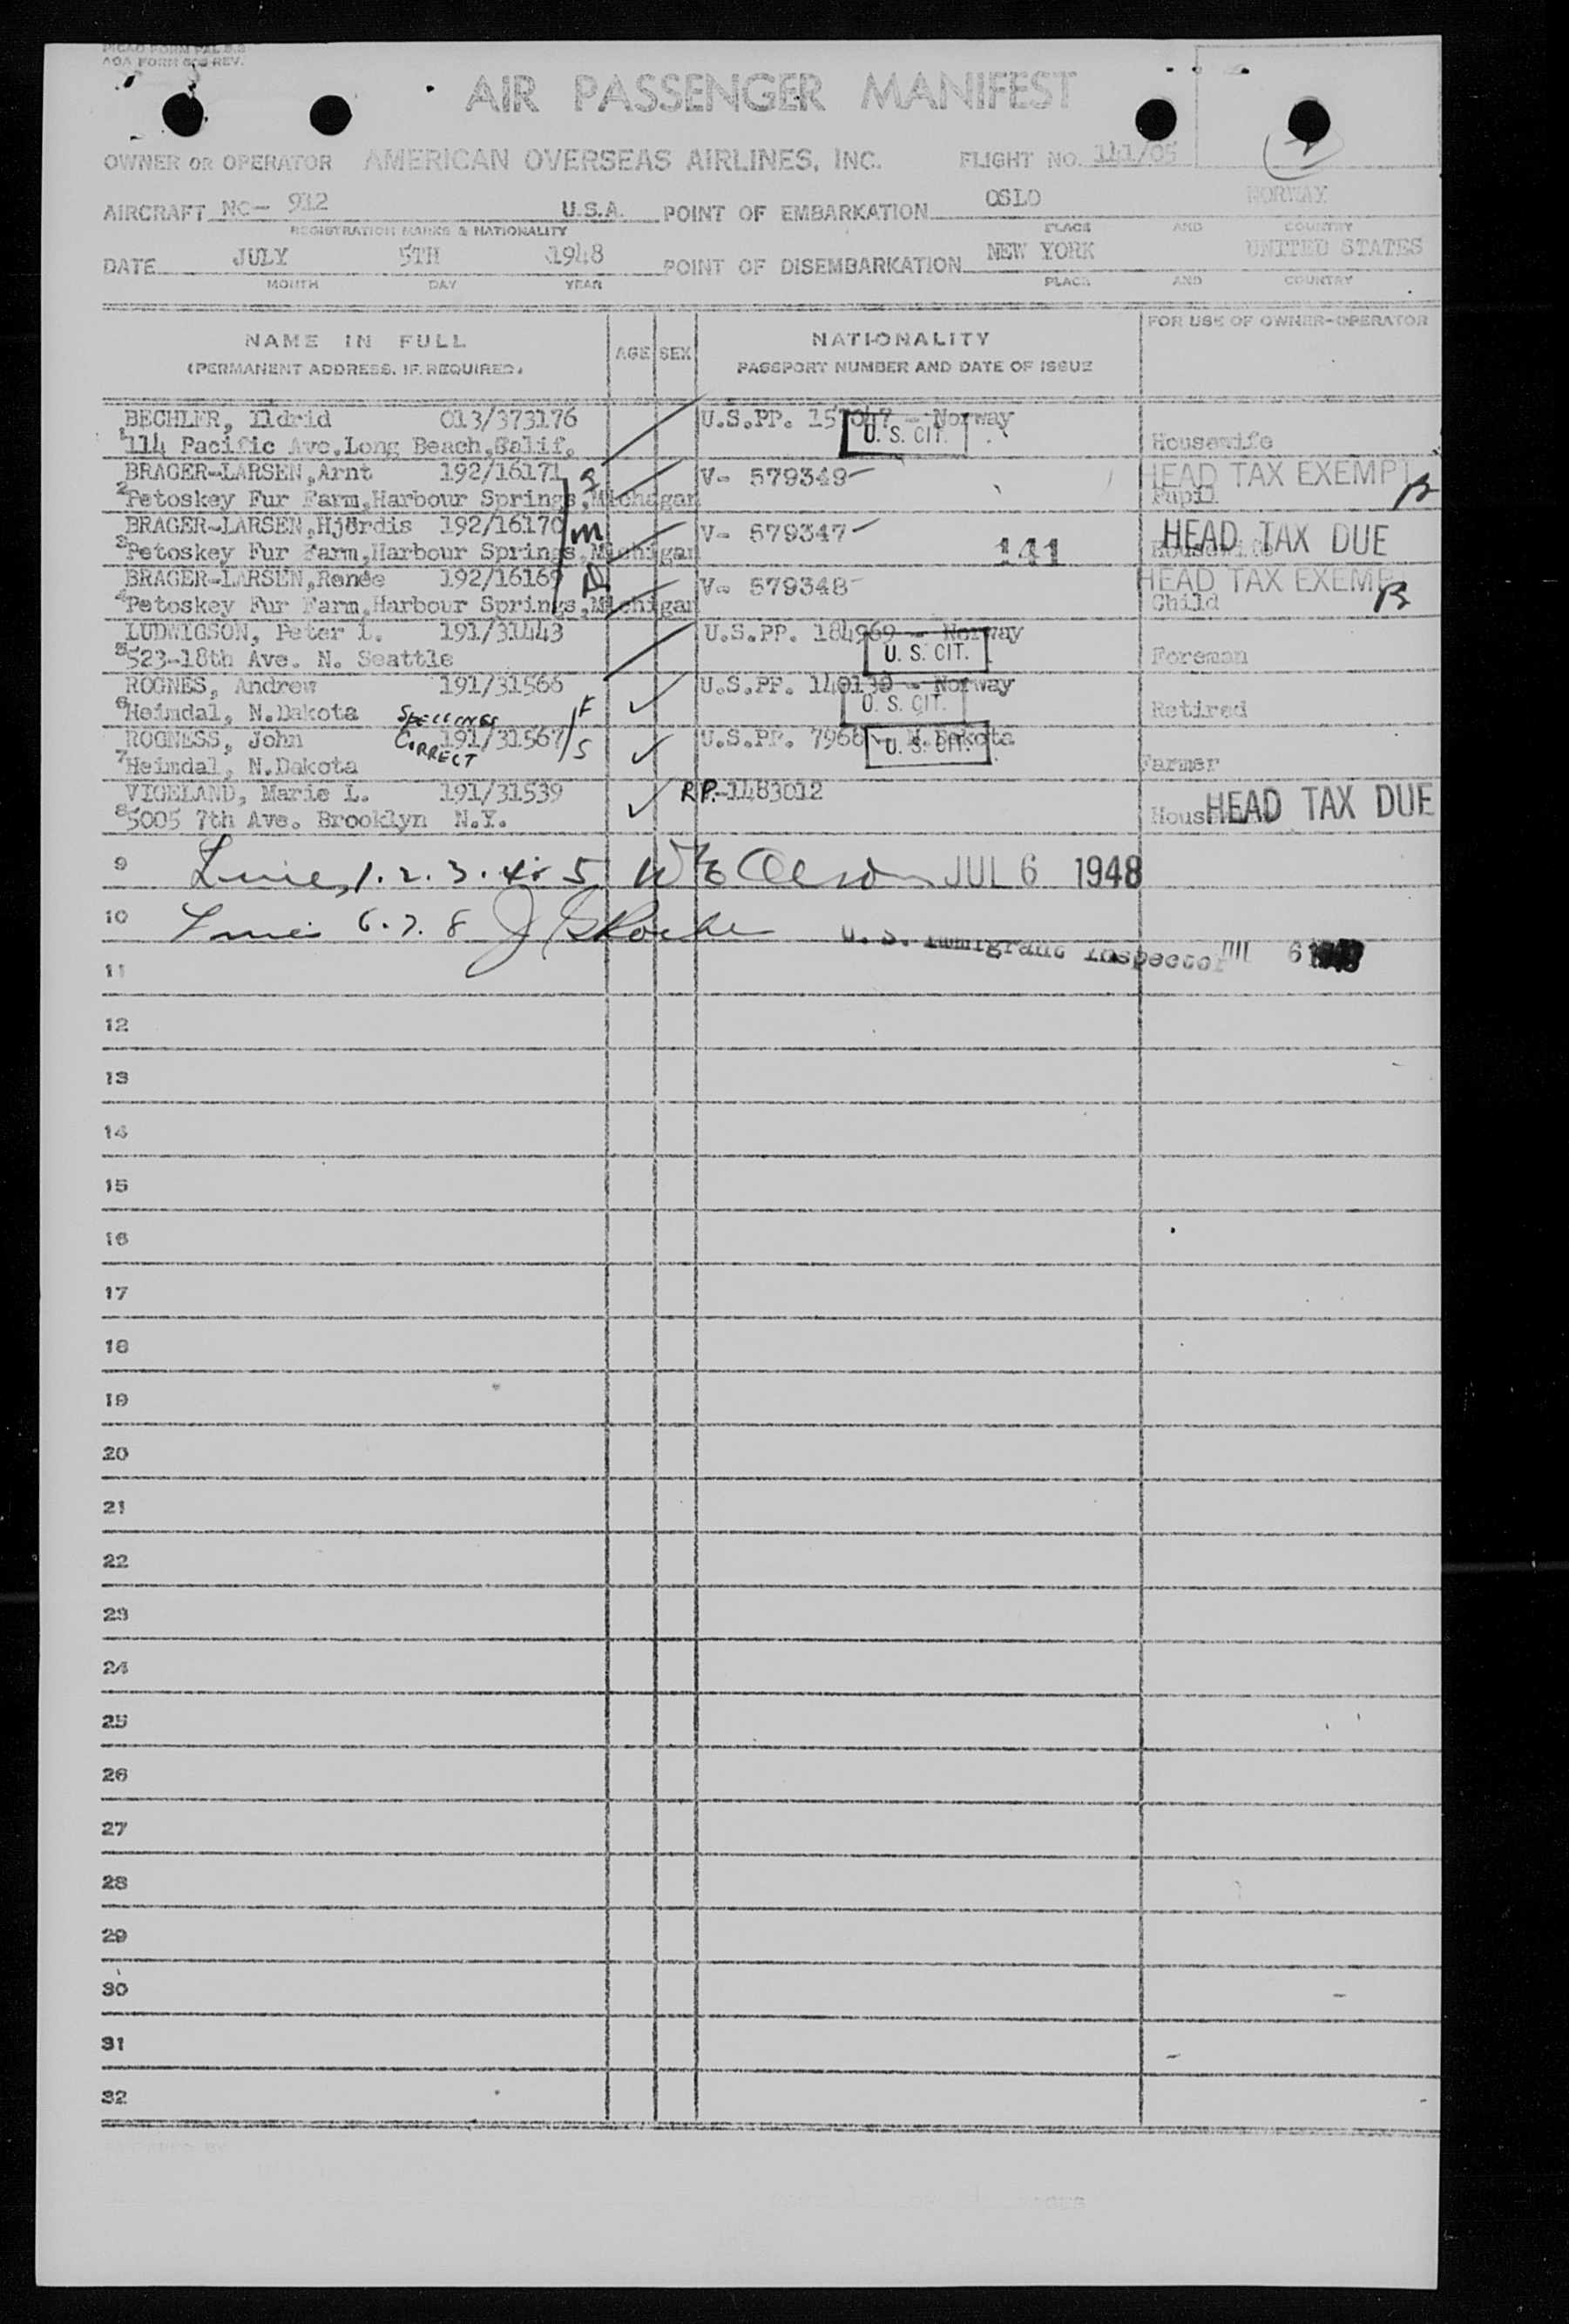 AOA FORM REV.
AIR PASSENGER MANIFEST
OWNER OR OPERATOR AMERICAN OVERSEAS AIRLINES, INC. FLIGHT NO. 141/05
AIRCRAFT NC- 912 U.S.A. POINT OF EMBARKATION OSLO NORWAY
REGISTRATION MARKS & NATIONALITY PLACE AND COUNTRY
DATE JULY 5TH 1948 POINT OF DISEMBARKATION NEW YORK UNITED STATES
MONTH DAY YEAR PLACE AND COUNTRY
NAME IN FULL AGE SEX NATIONALITY FOR USE OF OWNER-OPERATOR
(PERMANENT ADDRESS, IF REQUIRED) PASSPORT NUMBER AND DATE OF ISSUE
BECHLER, Ildrid 013/373176 U.S.PP. Norway
U. S. CIT.
1 114 Pacific Ave,Long Beach,Calif. Housewife
BRAGER-LARSEN,Arnt 192/16171 S V- 579349 HEAD TAX EXEMPT
2 Petoskey Fur Farm,Harbour Springs,Michagan Pupil B
BRAGER-LARSEN,Hjördis 192/16170 m V- 579347 HEAD TAX DUE
3 Petoskey Fur Farm,Harbour Springs,Michigan 141
BRAGER-LARSEN,Renée 192/16169 D V- 579348 HEAD TAX EXEMP
4 Petoskey Fur Farm,Harbour Springs,Michigan Child B
LUDWIGSON, Peter L. 191/31443 U.S.PP. 184969 - Norway
U. S. CIT.
5 523-18th Ave. N. Seattle Foreman
ROGNES, Andrew 191/31566 U.S.PP. 140139 - Norway
U. S. CIT.
6 Heimdal, N.Dakota SPELLINGS F Retired
ROGNESS, John CORRECT 191/31567 S U.S.PP. 7968 - N.Dakota
U. S. CIT.
7 Heimdal, N.Dakota Farmer
VIGELAND, Marie L. 191/31539 R.P.-1483012
8 5005 7th Ave. Brooklyn N.Y. HEAD TAX DUE
9 Lines 1. 2. 3. 4. 5 JUL 6 1948
10 Lines 6. 7. 8
U. S. Immigrant Inspector 6 1948
11
12
13
14
15
16
17
18
19
20
21
22
23
24
25
26
27
28
29
30
31
32